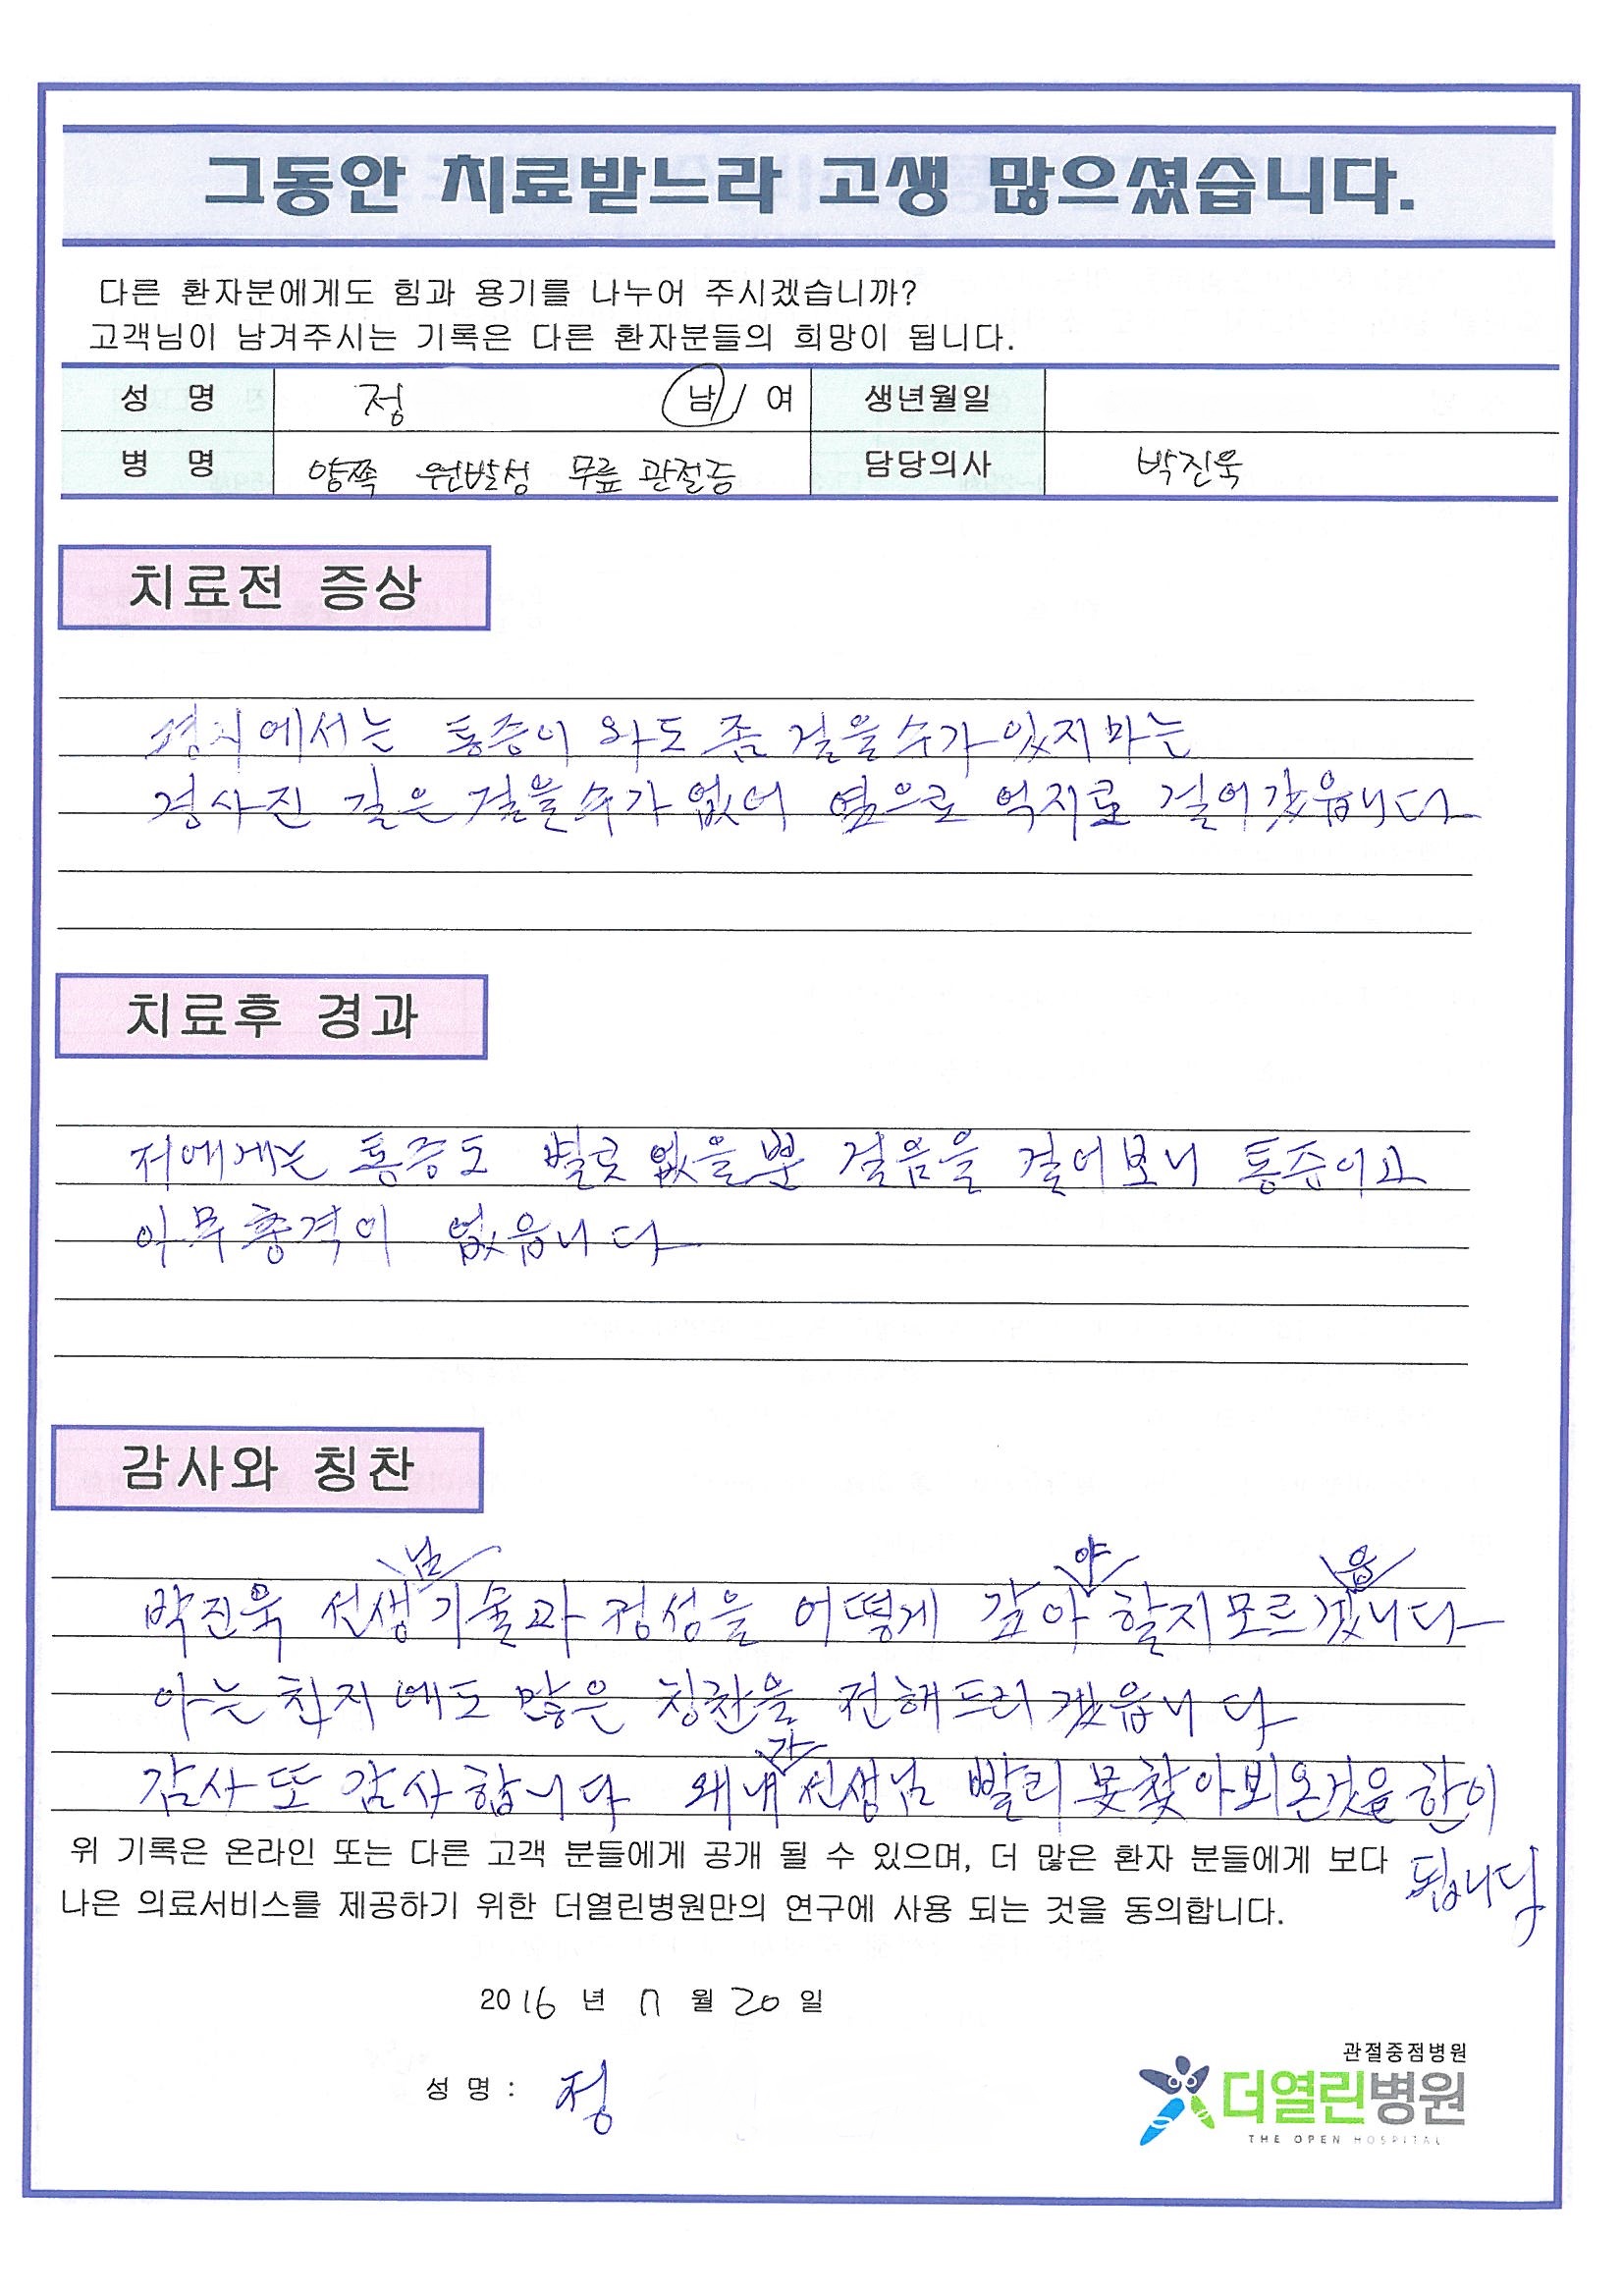 그동안 치료받느라 고생 많으셨습니다.
다른 환자분에게도 힘과 용기를 나누어 주시겠습니까?
고객님이 남겨주시는 기록은 다른 환자분들의 희망이 됩니다.
성 명 정 남 / 여 생년월일
병 명 양쪽 원발성 무릎 관절증 담당의사 박진욱
치료전 증상
평지에서는 통증이 와도 좀 걸을수가 있지마는
경사진 길은 걸을수가 없어 옆으로 억지로 걸어갔읍니다
치료후 경과
저에게는 통증도 별로 없을뿐 걸음을 걸어보니 통증이고
아무충격이 없읍니다
감사와 칭찬
박진욱 선생님 기술과 정성을 어떻게 갚아야 할지모르겠읍니다
아는 친지에도 많은 칭찬을 전해드리겠읍니다
감사또감사합니다 왜내가 선생님 빨리 못찾아뵈온것을 한이
됩니다
위 기록은 온라인 또는 다른 고객 분들에게 공개 될 수 있으며, 더 많은 환자 분들에게 보다
나은 의료서비스를 제공하기 위한 더열린병원만의 연구에 사용 되는 것을 동의합니다.
2016 년 7 월 20 일
성 명 : 정
관절중점병원
더열린병원
THE OPEN HOSPITAL